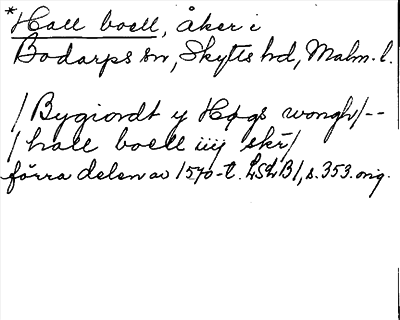 *Hall boell, åker i
Bodarps sn, Skytts hd, Malm. l.
/Bygiordt y Høgs wongh/--
/hall boell iiij skr̄/
förra delen av 1570-t. LSLB1, s. 353. orig.